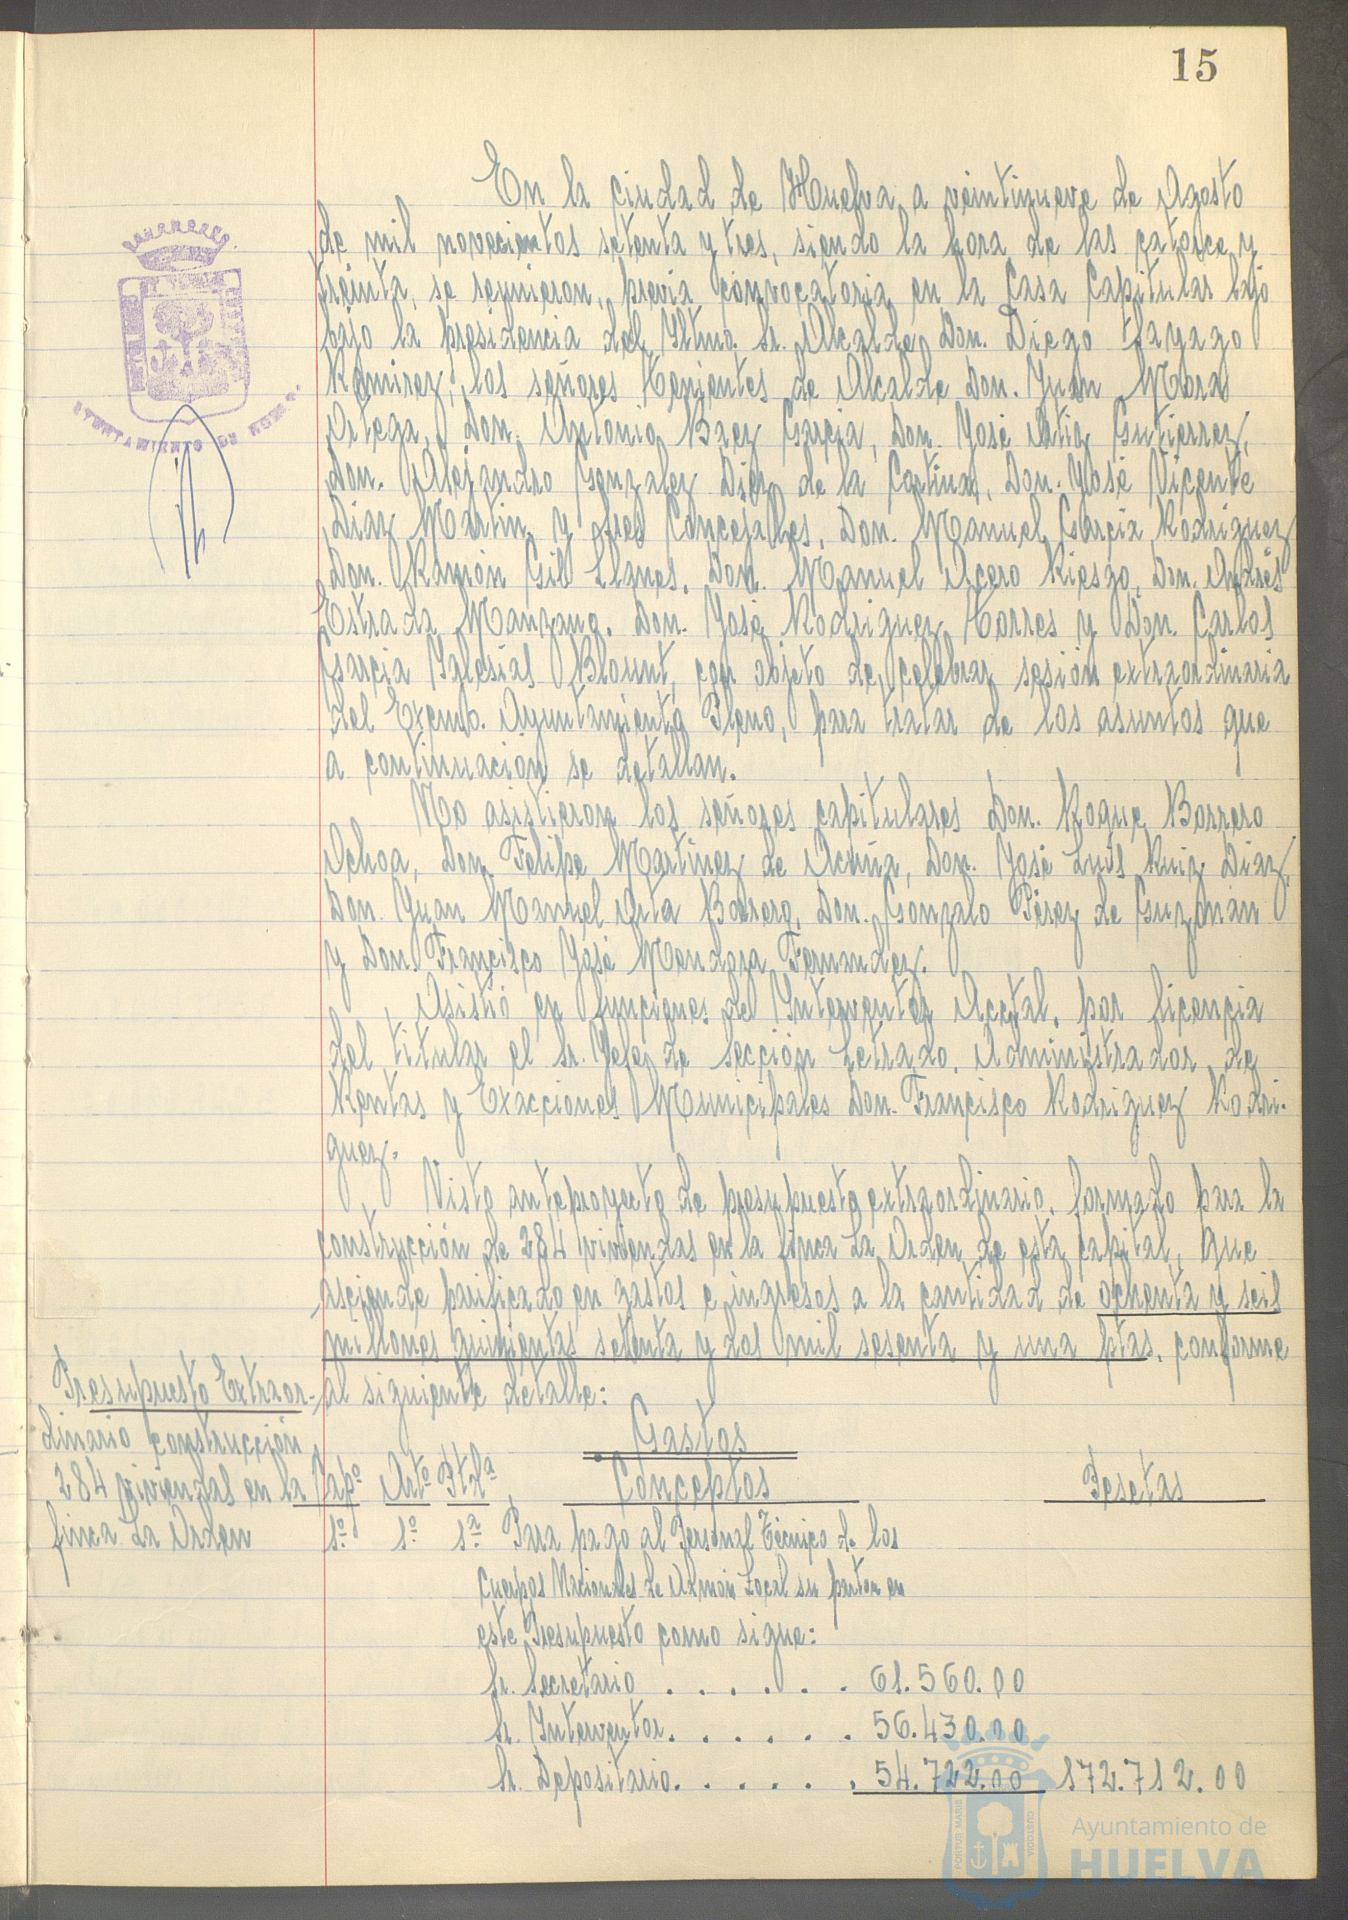 15
En la ciudad de Huelva a veintinueve de Agosto
de mil novecientos setenta y tres, siendo la hora de las catorce y
treinta, se reunieron, previa convocatoria en la Casa Capitular bajo
bajo la presidencia del Yltmo. Sr. Alcalde Don. Diego Sayago
Ramirez; los señores Tenientes de Alcalde Don. Juan Mora
Ortega, Don. Antonio Baez Garcia, Don. José Ortiz Gutierrez,
Don. Alejandro Gonzalez Diez de la Cortina, Don. José Vicente
Diaz Martin y Sres Concejales, Don. Manuel Garcia Rodriguez
Don. Ramón Gil Llanes, Don. Manuel Acero Riesgo, Don. Andrés
Estrada Manzano, Don. José Rodriguez Torres y Don. Carlos
Garcia Yglesias Blount, con objeto de celebrar sesión extraordinaria
del Excmo. Ayuntamiento Pleno, para tratar de los asuntos que
a continuación se detallan.
No asistieron los señores capitulares Don. Roque Barrero
Ochoa, Don Felipe Martinez de Acuña, Don. José Luis Ruiz Diaz,
Don. Juan Manuel Orta Borrero, Don. Gonzalo Pérez de Guzmán
y Don. Francisco José Mendoza Fernandez.
Asistió en funciones de Ynterventor Acctal. por licencia
del titular el Sr. Jefe de Sección Letrado, Administrador de
Rentas y Exacciones Municipales Don. Francisco Rodriguez Rodri-
guez.
Visto anteproyecto de presupuesto extraordinario, formado para la
construcción de 284 viviendas en la finca La Orden de esta capital, que
asciende en gastos e ingresos a la cantidad de ochenta y seis
millones quinientas setenta y dos mil sesenta y una ptas, conforme
al siguiente detalle:
Presupuesto Extraor-
dinario construcción
284 viviendas en la
finca La Orden
Gastos
Capº Artº Ptdª Conceptos Pesetas
1º 1º 1ª Para pago al Personal Técnico de los
cuerpos Nacionales de Admón Local su parte en
este Presupuesto como sigue:
Sr. Secretario . . . . . . . 61.560.00
Sr. Ynterventor. . . . . . . 56.430.00
Sr. Depositario. . . . . . . 54.722.00 172.712.00
Ayuntamiento de
HUELVA
PORTUS MARIS
CUSTODIA